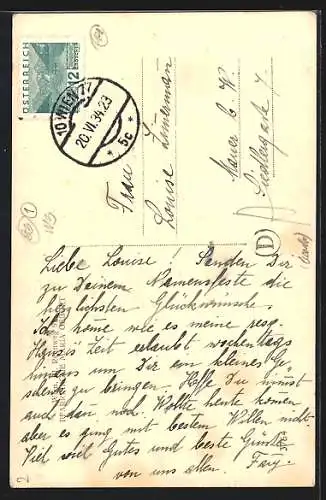 ÖSTERREICH
12
GROSCHEN
10 WIEN 77
20.VI.34.23
* 5c *
Frau
Louise
Mauer b. W.
Siedlergasse 7
D
Liebe Louise! Senden Dir
zu Deinem Namensfeste die
herzlichsten Glückwünsche.
Ich komme wie es meine resp.
Hansis Zeit erlaubt wochentags
hinaus um Dir ein kleines Ge-
schenk zu bringen. Hoffe Du nimmst
auch dann noch. Wollte heute kommen
aber es ging mit besten Willen nicht.
Viel viel Gutes und beste Grüsse
von uns allen.
2